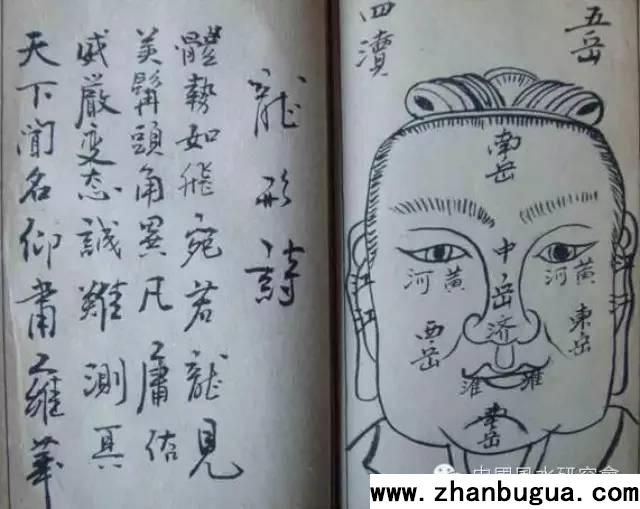 五岳
四瀆
南岳
中岳
黃河
黃河
江
江
東岳
西岳
济
淮
淮
岳
龍形詩
體勢如飛宛若龍見
美髯頭角異凡庸佑
威嚴变态誠難測
天下聞名仰
中國風水研究會
www.zhanbugua.com